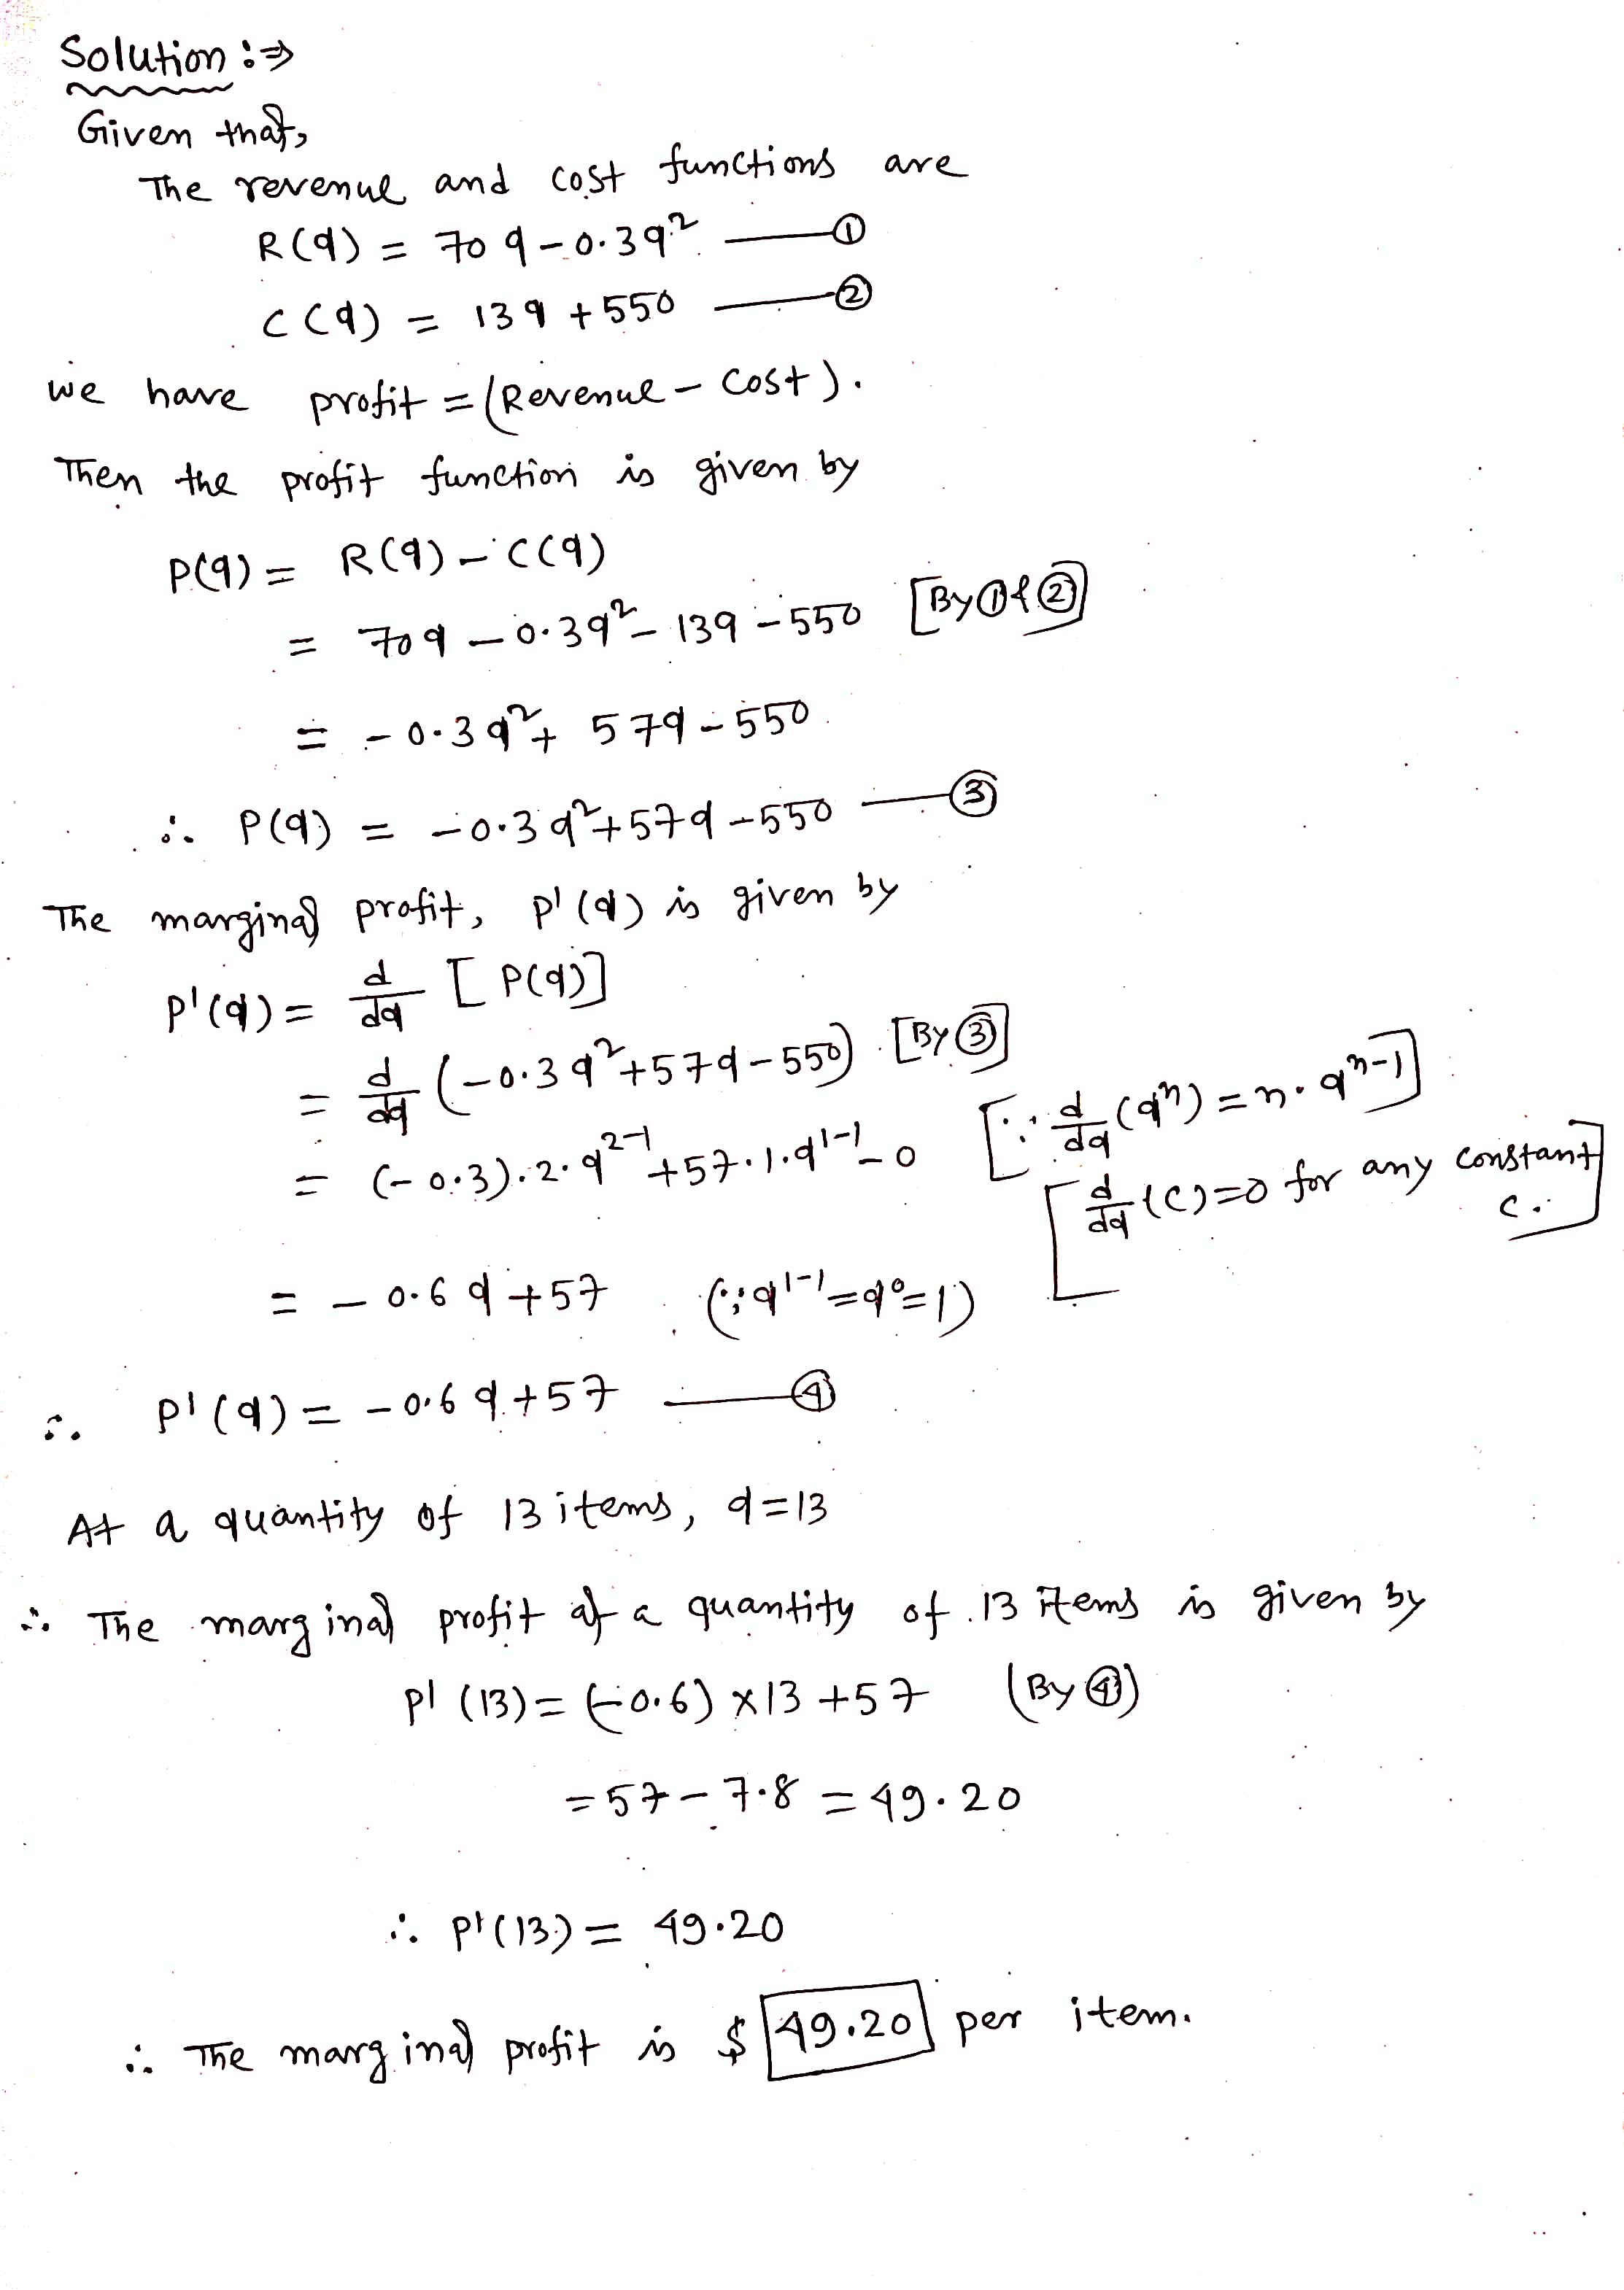 Solution :⇒
Given that,
The revenue and cost functions are
R(q) = 70q - 0.3q² —— ①
C(q) = 13q + 550 —— ②
we have profit = (Revenue - Cost).
Then the profit function is given by
P(q) = R(q) - C(q)
= 70q - 0.3q² - 13q - 550 [By ① & ②]
= -0.3q² + 57q - 550
∴ P(q) = -0.3q² + 57q - 550 —— ③
The marginal profit, P'(q) is given by
P'(q) = d/dq [P(q)]
= d/dq (-0.3q² + 57q - 550) [By ③]
= (-0.3).2.q²⁻¹ + 57.1.q¹⁻¹ - 0 [∵ d/dq (qⁿ) = n.qⁿ⁻¹]
[d/dq (c) = 0 for any constant c.]
= -0.6q + 57 (∵ q¹⁻¹ = q⁰ = 1)
∴ P'(q) = -0.6q + 57 —— ④
At a quantity of 13 items, q = 13
∴ The marginal profit at a quantity of 13 items is given by
P'(13) = (-0.6) × 13 + 57 (By ④)
= 57 - 7.8 = 49.20
∴ P'(13) = 49.20
∴ The marginal profit is $ 49.20 per item.